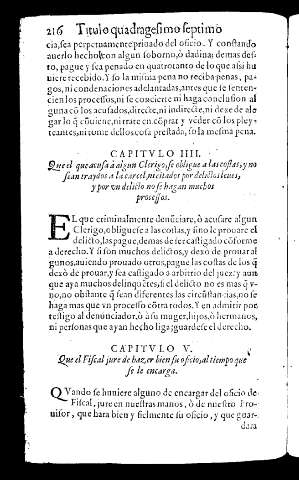 216 Titulo quadragesimo septimo
cia, sea perpetuamente priuado del oficio. Y constando
auerlo hecho con algun soborno, ò dadiua; demas des-
to, pague y sea penado en quatrotanto de lo que assi hu
uiere recebido. Y so la misma pena no reciba penas, pa-
gos, ni condenaciones adelantadas, antes que se senten-
cien los processos, ni se concierte ni haga conclusion al
guna cõ los acusados, directe, ni indirecte, ni dexe de ale
gar lo q̃ cõuiene, ni trate en cõprar y vèder cõ los pley-
teantes, ni tome dellos cosa prestada, so la mesma pena.
CAPITVLO IIII.
Que el que acusa à algun Clerigo, se obligue a las costas, y no
sean traydos a la carcel, ni citados por delictos leues,
y por vn delicto no se hagan muchos
processos.
EL que criminalmente denũciare, ò acusare algun
Clerigo, obliguese a las costas, y sino le prouare el
delicto, las pague, demas de ser castigado cõforme
a derecho. Y si son muchos delictos, y dexò de prouar al
gunos, auiendo prouado otros, pague las costas de los q̃
dexò de prouar, y sea castigado a arbitrio del juez: y aun
que aya muchos delinquẽtes, si el delicto no es mas q̃ v-
no, no obstante q̃ sean diferentes las circũstancias, no se
haga mas que vn processo cõtra todos. Y en admitir por
testigo al denunciador, ò a su muger, hijos, ò hermanos,
ni personas que ayan hecho liga; guardese el derecho.
CAPITVLO V.
Que el Fiscal jure de hazer bien su oficio, al tiempo que
se le encarga.
QVando se huuiere alguno de encargar del oficio de
Fiscal, jure en nuestras manos, ò de nuestro Pro-
uisor, que hara bien y fielmente su oficio, y que guar-
dara